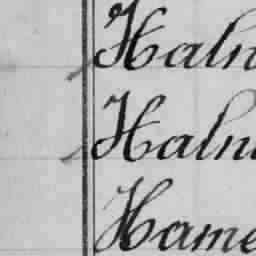 Haln
Haln
Hame